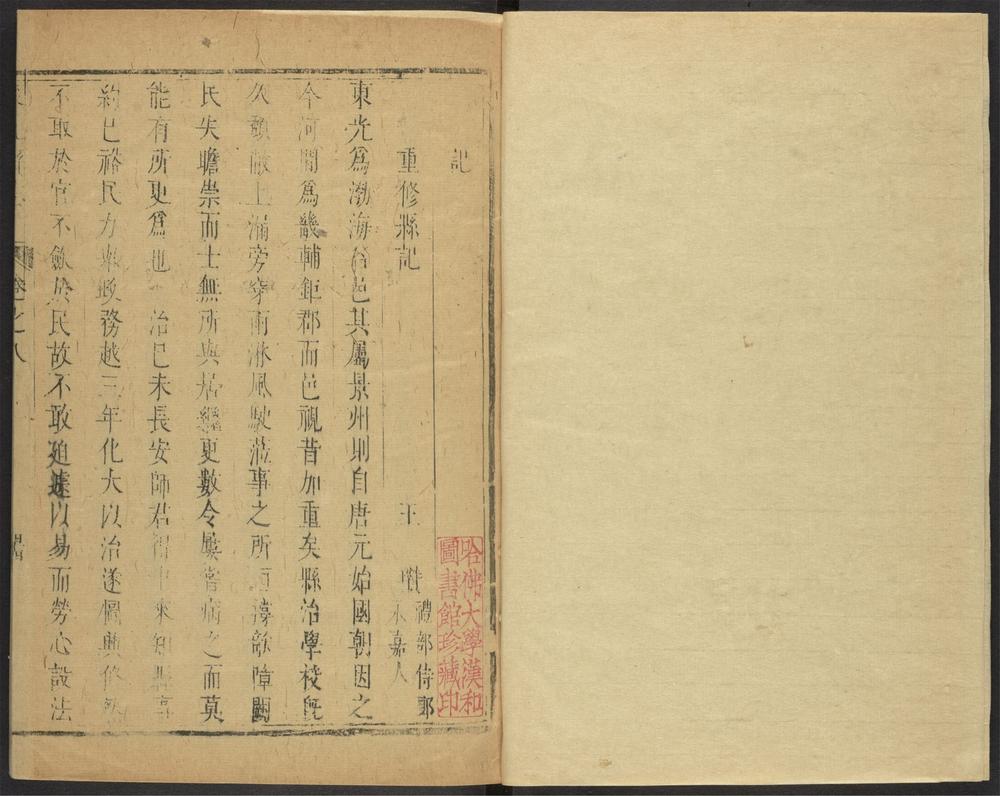 記
重修縣記 王瓚 禮部侍郎 永嘉人
哈佛大學漢和
圖書館珍藏印
東光爲渤海台邑其屬景州則自唐元始國朝因之
今河間爲畿輔鉅郡而邑視昔加重矣縣治學校旣
久頹敝上漏旁穿雨淋風駛蒞事之所 障闕
民失瞻崇而士無所與居繼更數令屢 病之而莫
能有所更爲也 治己未長安師君 來知縣事
約己裕民力 政務越三年化大以治遂 興修
不取於官不歛於民故不敢廹遽以易而勞心設法
卷之八